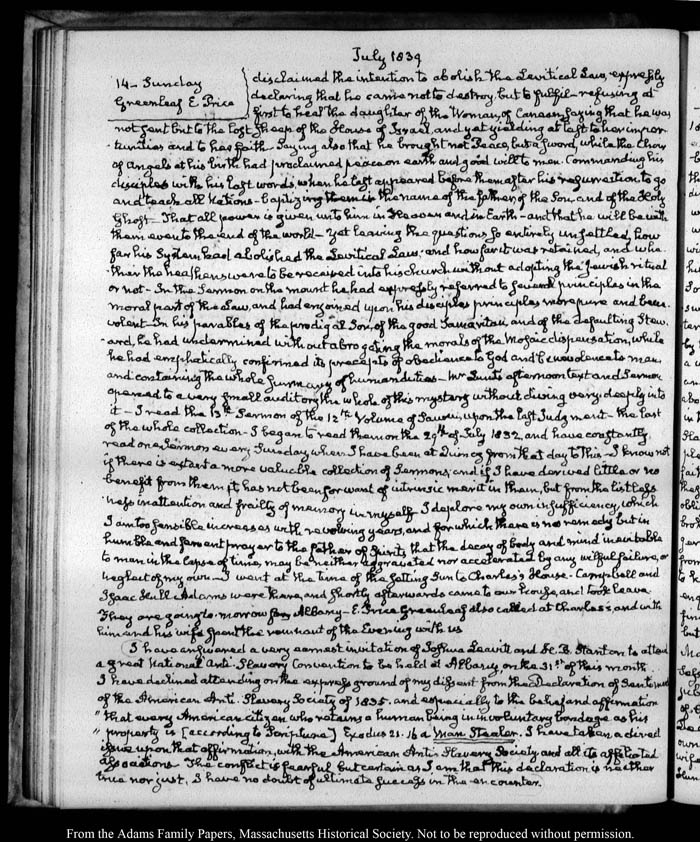 July 1839
14 – Sunday
Greenleaf E. Price
disclaimed the intention to abolish the Levitical Law, expressly
declaring that he came not to destroy but to fulfil – refusing at
first to heal the daughter of the Woman of Canaan, saying that he was
not sent but to the lost Sheep of the House of Israel, and yet yielding at last to her impor-
tunities and to her faith – Saying also that he brought not Peace, but a Sword, while the Choir
of Angels at his birth had proclaimed peace on earth and good will to men. Commanding his
disciples with his last words, when he last appeared before them after his resurrection, to go
and teach all Nations – baptizing them in the name of the father, of the Son, and of the Holy
Ghost – That all power is given unto him in Heaven and in Earth – and that he will be with
them even to the end of the world – Yet leaving the questions so entirely unsettled, how
far his System had abolished the Levitical Law, and how far it was retained, and whe-
ther the heathens were to be received into his church without adopting the Jewish ritual
or not – In the Sermon on the mount he had expressly referred to several principles in the
moral part of the Law, and had enjoined upon his disciples principles more pure and benev-
volent – In his parables of the prodigal Son, of the good Samaritan, and of the defaulting Stew-
ard, he had undermined without abrogating the morals of the Mosaic dispensation, while
he had emphatically confirmed its precepts of obedience to God and benevolence to man
and containing the whole Summary of human duties – Mr Lunt's afternoon text and Sermon
opened to a very small auditory the whole of this mystery without diving very deeply into
it – I read the 13th Sermon of the 12th Volume of Saurin, upon the last Judgment – the last
of the whole collection – I began to read them on the 29th of July 1832, and have constantly
read one Sermon every Sunday when I have been at Quincy from that day to this – I know not
if there is extant a more valuable collection of Sermons, and if I have derived little or no
benefit from them it has not been for want of intrinsic merit in them, but from the listless-
ness inattention and frailty of memory in myself. I deplore my own insufficiency, which
I am too sensible increases with revolving years, and for which there is no remedy but in
humble and fervent prayer to the father of Spirits that the decay of body and mind inevitable
to man in the lapse of time, may be neither aggravated nor accelerated by any wilful failure, or
neglect of my own – I went at the time of the setting Sun to Charles's House – Campbell and
Isaac Hull Adams were there, and shortly afterwards came to our house, and took leave
They are going to-morrow for Albany – E. Price Greenleaf also called at Charles's and with
him and his wife spent the remnant of the Evening with us
I have answered a very earnest invitation of Joshua Leavitt and H. B. Stanton to attend
a great National Anti-Slavery Convention to be held at Albany, on the 31st of this month
I have declined attending on the express ground of my dissent from the Declaration of Sentiments
of the American Anti-Slavery Society of 1835. and especially to the belief and affirmation
"that every American citizen who retains a human being in involuntary bondage as his
" property is [according to Scripture] Exodus 21. 16 a Man Stealer. I have taken a direct
issue upon that affirmation, with the American Anti-Slavery Society and all its affiliated
associations The conflict is fearful but certain as I am that this declaration is neither
true nor just, I have no doubt of ultimate success in the encounter.
From the Adams Family Papers, Massachusetts Historical Society. Not to be reproduced without permission.